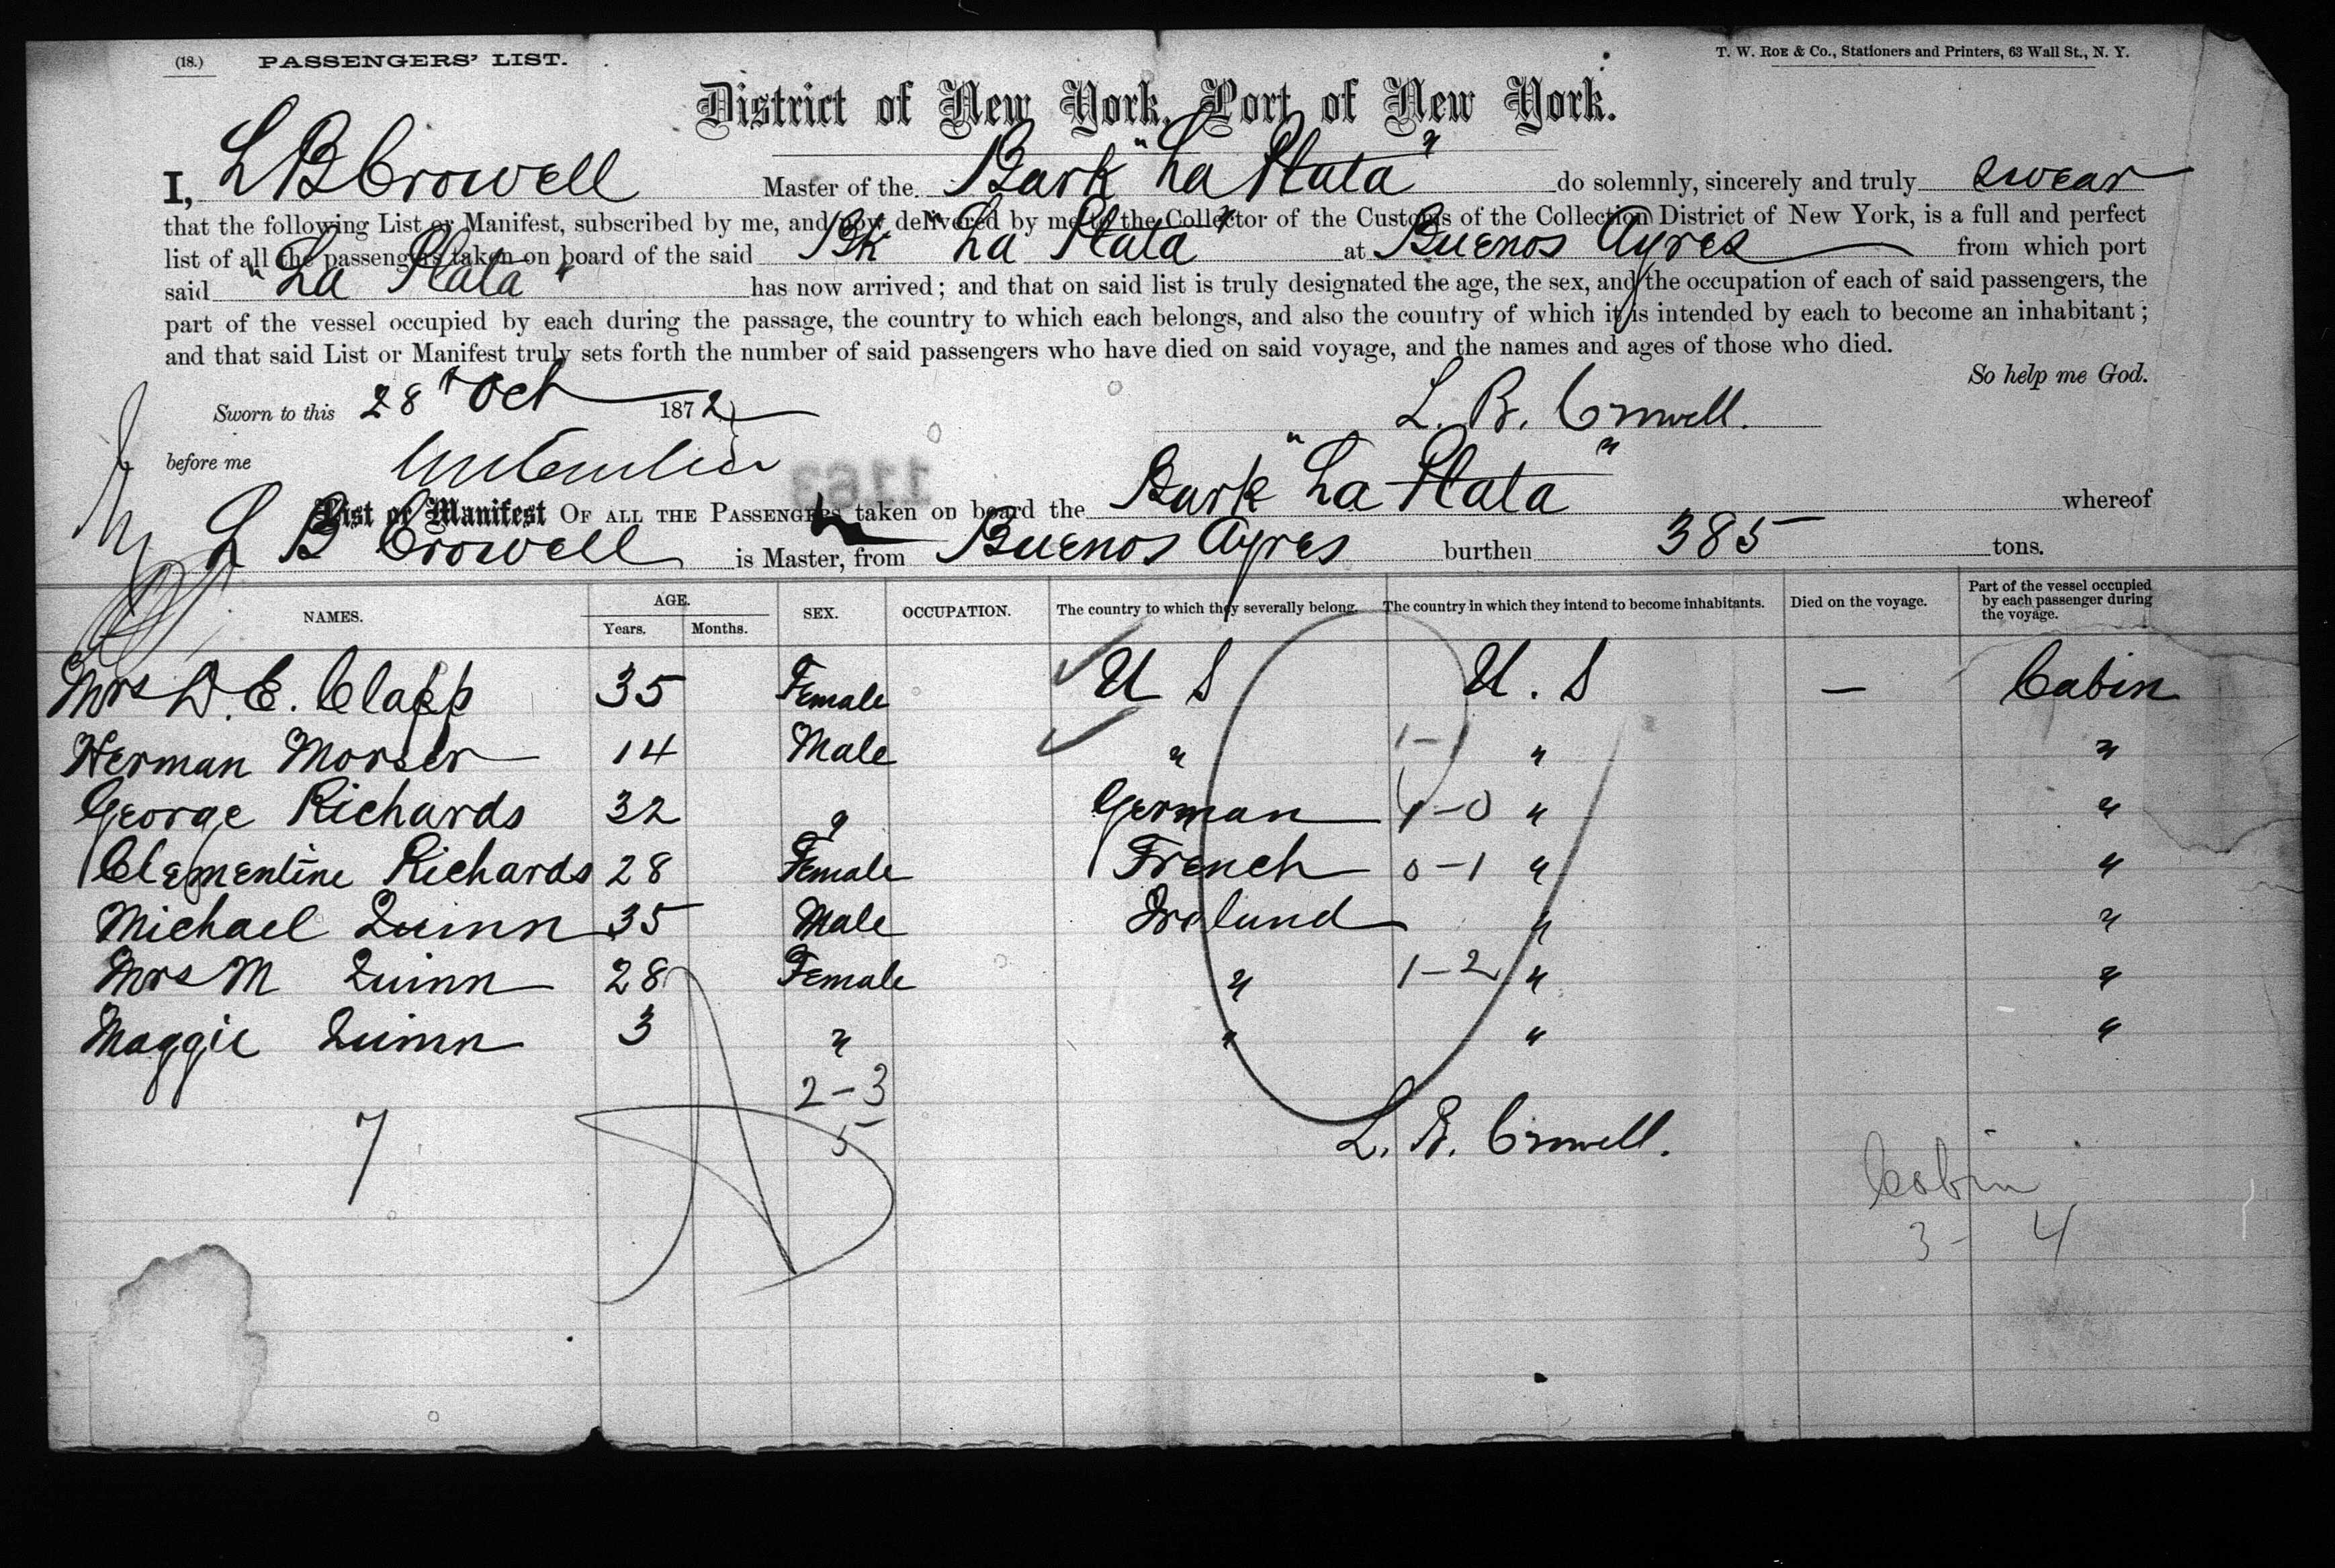 (18.) PASSENGERS' LIST.
T. W. ROE & Co., Stationers and Printers, 63 Wall St., N. Y.
District of New York, Port of New York.
I, L B Crowell Master of the Bark "La Plata" do solemnly, sincerely and truly swear
that the following List or Manifest, subscribed by me, and now delivered by me to the Collector of the Customs of the Collection District of New York, is a full and perfect
list of all the passengers taken on board of the said Bk "La Plata" at Buenos Ayres from which port
said "La Plata" has now arrived; and that on said list is truly designated the age, the sex, and the occupation of each of said passengers, the
part of the vessel occupied by each during the passage, the country to which each belongs, and also the country of which it is intended by each to become an inhabitant;
and that said List or Manifest truly sets forth the number of said passengers who have died on said voyage, and the names and ages of those who died.
So help me God.
Sworn to this 28th Oct 1872 L. B. Crowell.
before me
1163
List or Manifest OF ALL THE PASSENGERS taken on board the Bark "La Plata" whereof
L B Crowell is Master, from Buenos Ayres burthen 385 tons.
NAMES. AGE. Years. Months. SEX. OCCUPATION. The country to which they severally belong. The country in which they intend to become inhabitants. Died on the voyage. Part of the vessel occupied by each passenger during the voyage.
Mrs D. E. Clapp 35 Female U S U. S — Cabin
Herman Morser 14 Male " 1-1 " "
George Richards 32 " German 1-0 " "
Clementine Richards 28 Female French 0-1 " "
Michael Quinn 35 Male Ireland " "
Mrs M Quinn 28 Female " 1-2 " "
Maggie Quinn 3 " " " "
2-3
7 5 L. B. Crowell.
Cabin
3- 4